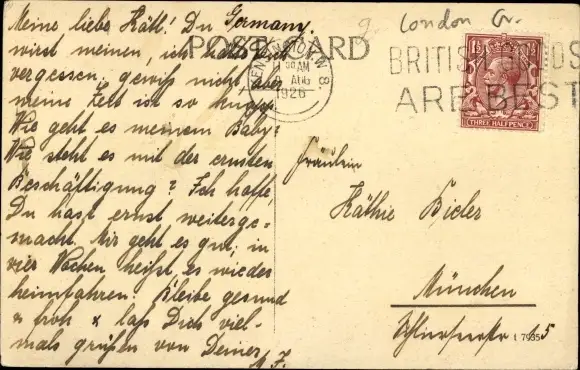 Meine liebe Kätl! Du Germany
wirst meinen, ich hätte
vergessen. gewiß nicht aber
meine Zeit ist so knapp.
Wie geht es meinem Baby?
Wie steht es mit der ernsten
Beschäftigung? Ich hoffe,
Du hast ernst weiterge-
macht. Mir geht es gut, in
vier Wochen heißt es wieder
heimfahren. Bleibe gesund
& froh & laß Dich viel-
mals grüßen von Deiner
M. F.
POST CARD
London
KENSINGTON W 8
AM
AUG
1926
BRITISH GOODS
ARE BEST
1½
THREE HALFPENCE
Fräulein
Käthie Bieler
München
15
t 7935